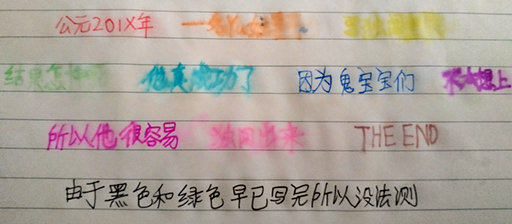 公元201X年
结果怎 他真成功了 因为鬼宝宝们 不想上
所以他很容易 独闯出来 THE END
由于黑色和绿色早已写完所以没法测